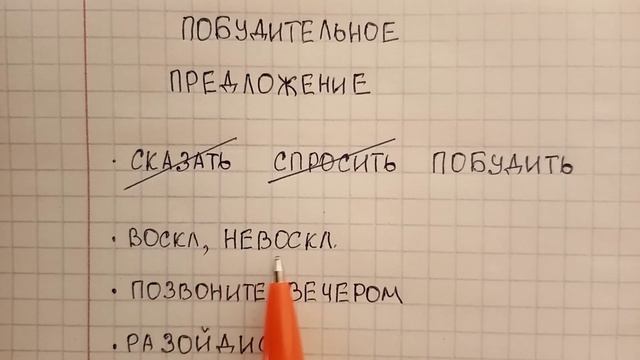 ПОБУДИТЕЛЬНОЕ
ПРЕДЛОЖЕНИЕ
· СКАЗАТЬ СПРОСИТЬ ПОБУДИТЬ
· ВОСКЛ, НЕВОСКЛ.
· ПОЗВОНИТЕ ВЕЧЕРОМ